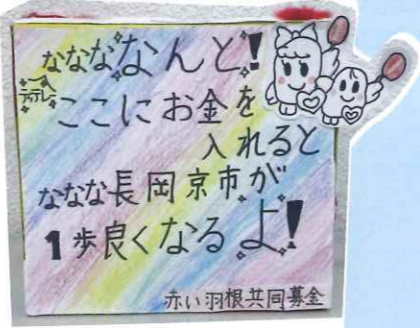 なななななんと!
テテレー
ここにお金を
入れると
ななな長岡京市が
1歩良くなるよ!
赤い羽根共同募金